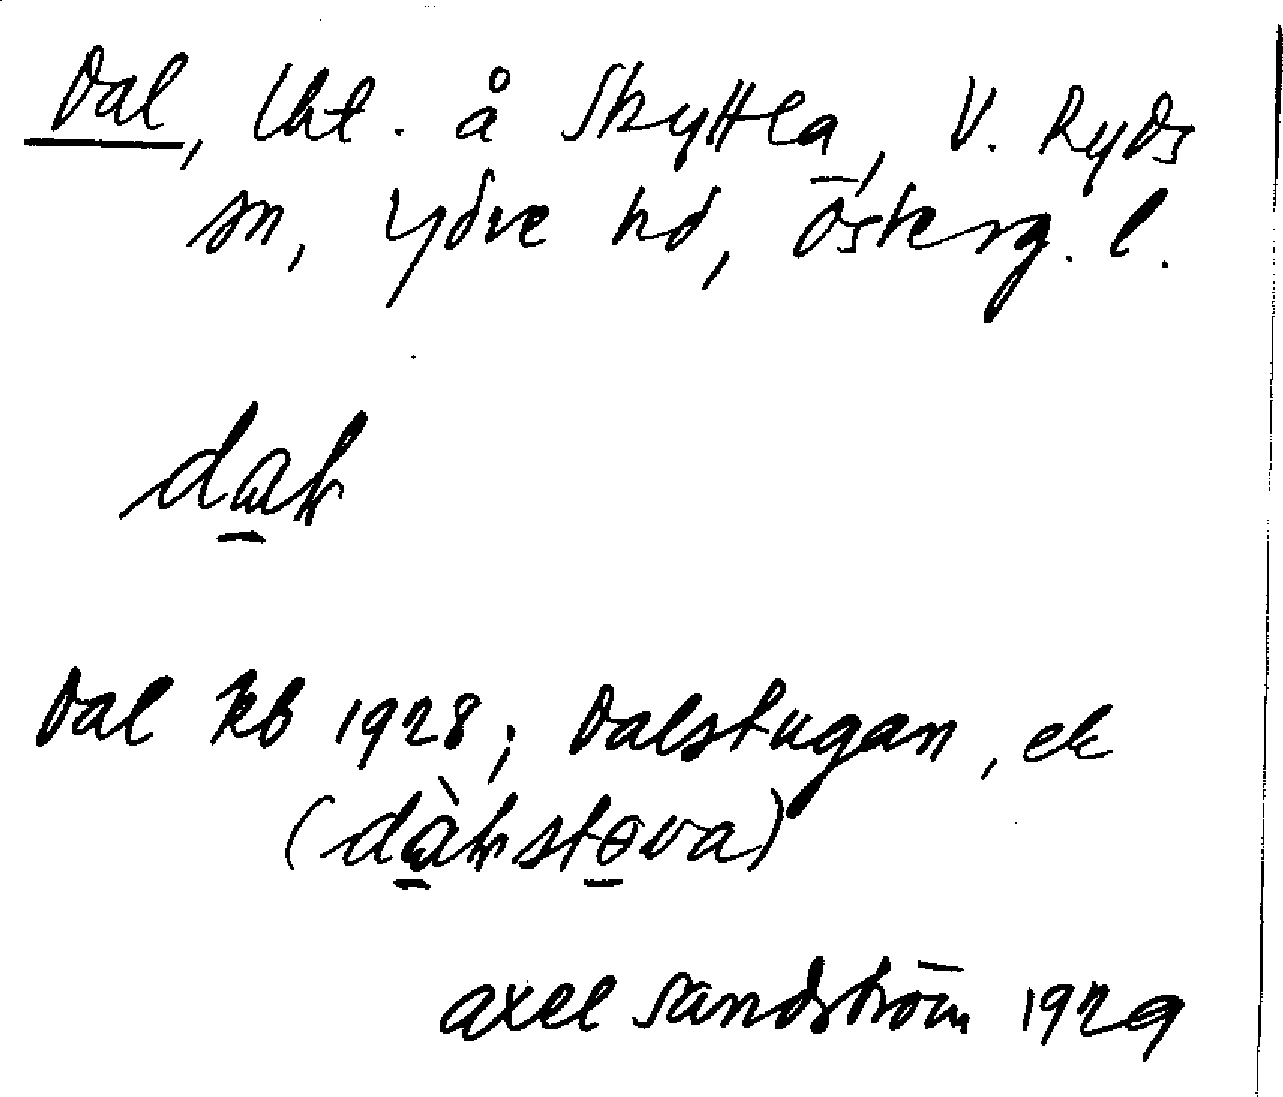 Dal, lht. å Skyttla, V. Ryds
sn, Ydre hd, Österg. l.
Dal kb 1928; Dalstugan, ek
Axel Sandström 1929